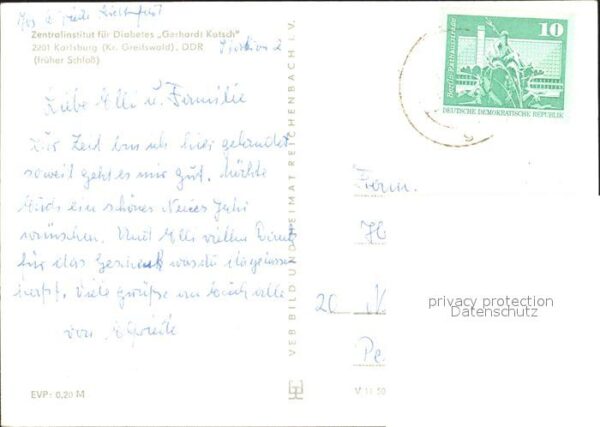 Zentralinstitut für Diabetes „Gerhardt Katsch"
2201 Karlsburg (Kr. Greifswald), DDR
(früher Schloß)
Liebe Elli u. Familie
Zur Zeit bin ich hier gelandet
soweit geht es mir gut. Möchte
Euch ein schönes Neues Jahr
wünschen. Und Elli vielen Dank
für das Geschenk was du dagelassen
hast. Viele Grüße an Euch alle
von
EVP: 0,20 M
VEB BILD UND HEIMAT REICHENBACH I. V.
10
Berlin, Rathausstraße
DEUTSCHE DEMOKRATISCHE REPUBLIK
Fam.
20 N
privacy protection
Datenschutz
Pe
V 11 50